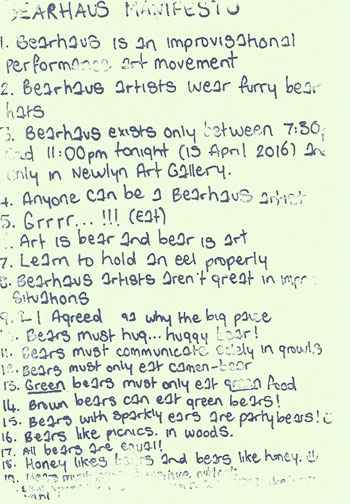 BEARHAUS MANIFESTO
1. Bearhaus is an improvisational
performance art movement
2. Bearhaus artists wear furry bear
hats
3. Bearhaus exists only between 7:30p
and 11:00pm tonight (15 April 2016) and
only in Newlyn Art Gallery.
4. Anyone can be a Bearhaus artist
5. Grrrr... !!! (Eat)
Art is bear and bear is art
7. Learn to hold an eel properly
8. Bearhaus artists aren't great in impro
situations
9. Agreed why the big paws
Bears must hug... huggy bear!
11. Bears must communicate solely in growls
12. Bears must only eat camen-bear
13. Green bears must only eat green food
14. Brown bears can eat green bears!
15. Bears with sparkly ears are partybears!
16. Bears like picnics. in woods.
17. All bears are equal!
18. Honey likes bears and bears like honey.
19. Bears must